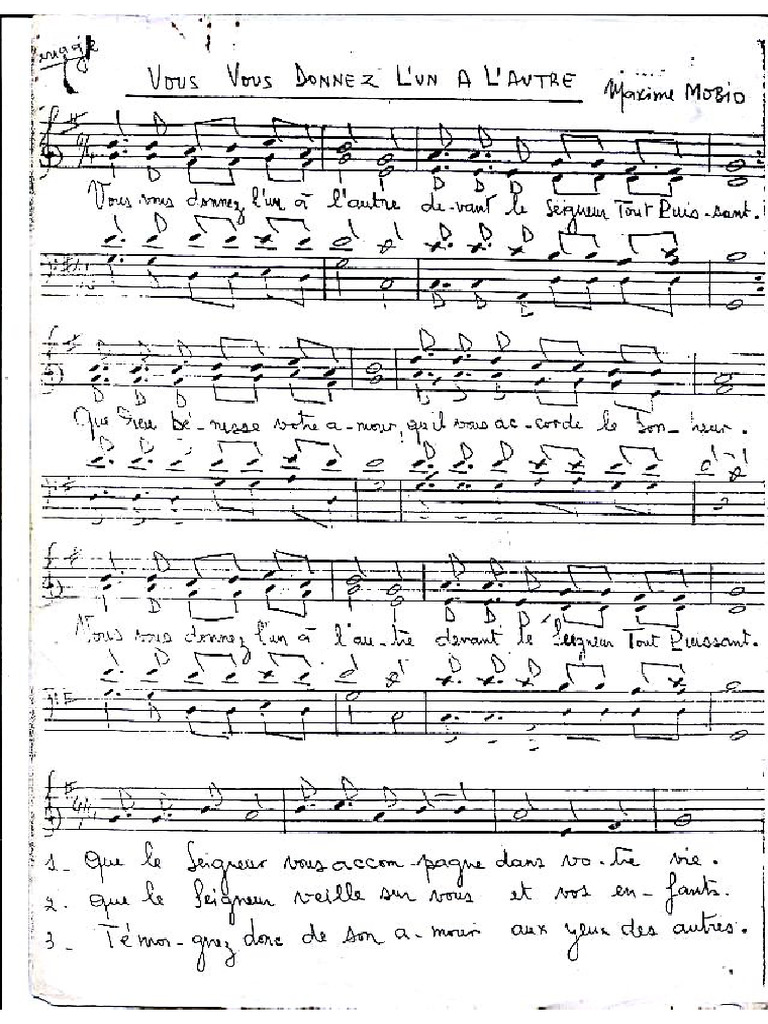 VOUS VOUS DONNEZ L'UN A L'AUTRE
Maxime MOBIO
Vous vous donnez l'un à l'autre de-vant le Seigneur Tout Puis-sant.
Que Dieu bé-nisse votre a-mour, qu'il vous ac-corde le bon-heur.
Vous vous donnez l'un à l'au-tre devant le Seigneur Tout Puissant.
1- Que le Seigneur vous accom-pagne dans vo-tre vie.
2. Que le Seigneur veille sur vous et vos en-fants.
3- Témoi-gnez donc de son a-mour aux yeux des autres.